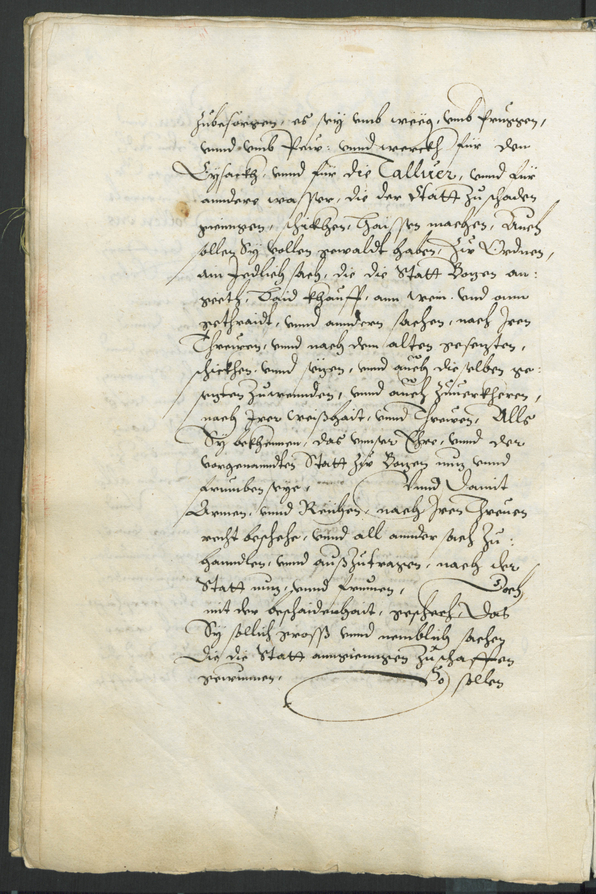 zubesorgen, es sey umb weeg, umb pruggen,
unnd umb Paw: unnd werckh für den
Eysackh, unnd für die Tallver, unnd für
anndere wasser, die der Statt zu schaden
giengen, schickhen, haissen machen, Auch
sollen Sy vollen gewaldt haben, zu Ordnen,
am Jedlich sach, die die Statt Bozen an:
geeth, Baid khauff, ann wein und ann
gethraidt, unnd anndern sachen, nach Iren
Threuen, unnd nach dem alten gesezten,
schickhen unnd sezen, unnd auch dieselben ge:
sezten zuwennden, unnd auch zuverkheren,
nach Irer weißhait, unnd Threuen, Alls
Sy bekhennen, das unnser Ehre, unnd der
vorgenanndten Statt zu Bozen nuz unnd
frumben seye, Unnd Damit
Armen, unnd Reichen, nach Iren Threuen
recht beschehe, unnd all annder sach zu:
hanndlen, unnd außzutragen, nach der
Statt nuz, unnd frumen, Doch
mit der beschaidenhait, geschech, Das
Sy sollich gross unnd nemblich sachen
Die die Statt anngienngen zu schaffen
gewunnen, So sollen